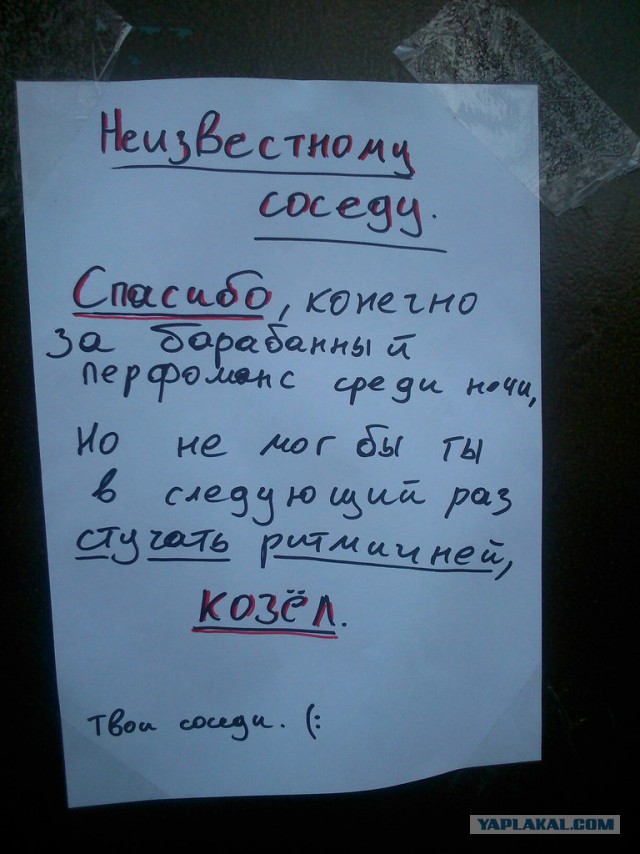 Неизвестному
соседу.
Спасибо, конечно
за барабанный
перфоманс среди ночи,
Но не мог бы ты
в следующий раз
стучать ритмичней,
козёл.
Твои соседи. (:
YAPLAKAL.COM